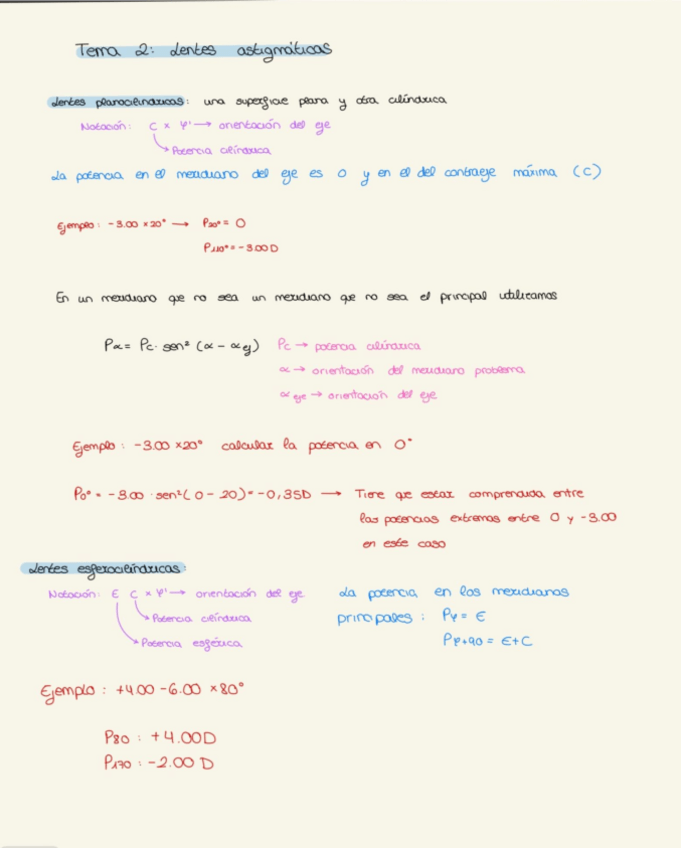 Tema 2: Lentes astigmáticas
Lentes planocilíndricas: una superficie plana y otra cilíndrica
Notación: C x φ' → orientación del eje
Potencia cilíndrica
La potencia en el meridiano del eje es 0 y en el del contraeje máxima (C)
Ejemplo: -3.00 x 20° → P20° = 0
P110° = -3.00D
En un meridiano que no sea un meridiano que no sea el principal utilizamos
Pα = Pc · sen² (α - α ej) Pc → potencia cilíndrica
α → orientación del meridiano problema
α eje → orientación del eje
Ejemplo: -3.00 x 20° calcular la potencia en 0°
P0° = -3.00 · sen² (0 - 20) = -0,35D → Tiene que estar comprendida entre
las potencias extremas entre 0 y -3.00
en este caso
Lentes esferocilíndricas:
Notación: E C x φ' → orientación del eje
Potencia cilíndrica
Potencia esférica
La potencia en los meridianos
principales: Pφ = E
Pφ+90 = E+C
Ejemplo: +4.00 -6.00 x 80°
P80: +4.00D
P170: -2.00 D